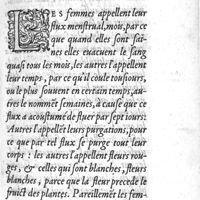 LES femmes appellent leur
flux menstrual, mois, par ce
que quand elles sont sai-
nes elles euacuent le sang
quasi tous les mois, les autres l'appellent
leur temps, par ce qu'il coule tousiours,
ou le plus souuent en certain temps, au-
tres le nomment semaines, à cause que ce
flux a acoustumé de fluer par sept iours:
Autres l'appellēt leurs purgations, pour
ce que par tel flux se purge tout leur
corps : les autres l'appellent fleurs rou-
ges, & celles qui sont blanches, fleurs
blanches, parce que la fleur precede le
fruict des plantes. Pareillemēt les fem-